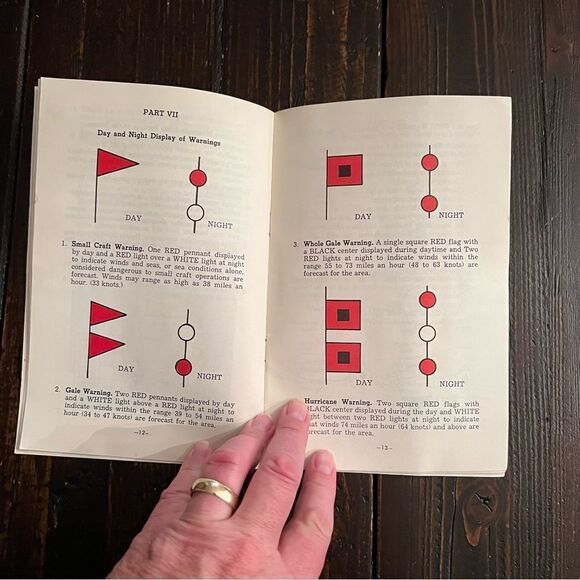 PART VII
Day and Night Display of Warnings
DAY
NIGHT
1. Small Craft Warning. One RED pennant displayed
by day and a RED light over a WHITE light at night
to indicate winds and seas, or sea conditions alone,
considered dangerous to small craft operations are
forecast. Winds may range as high as 38 miles an
hour. (33 knots.)
DAY
NIGHT
2. Gale Warning. Two RED pennants displayed by day
and a WHITE light above a RED light at night to
indicate winds within the range 39 to 54 miles an
hour (34 to 47 knots) are forecast for the area.
—12—
DAY
NIGHT
3. Whole Gale Warning. A single square RED flag with
a BLACK center displayed during daytime and Two
RED lights at night to indicate winds within the
range 55 to 73 miles an hour (48 to 63 knots) are
forecast for the area.
DAY
NIGHT
Hurricane Warning. Two square RED flags with
BLACK center displayed during the day and WHITE
between two RED lights at night to indicate
winds 74 miles an hour (64 knots) and above are
forecast for the area.
—13—